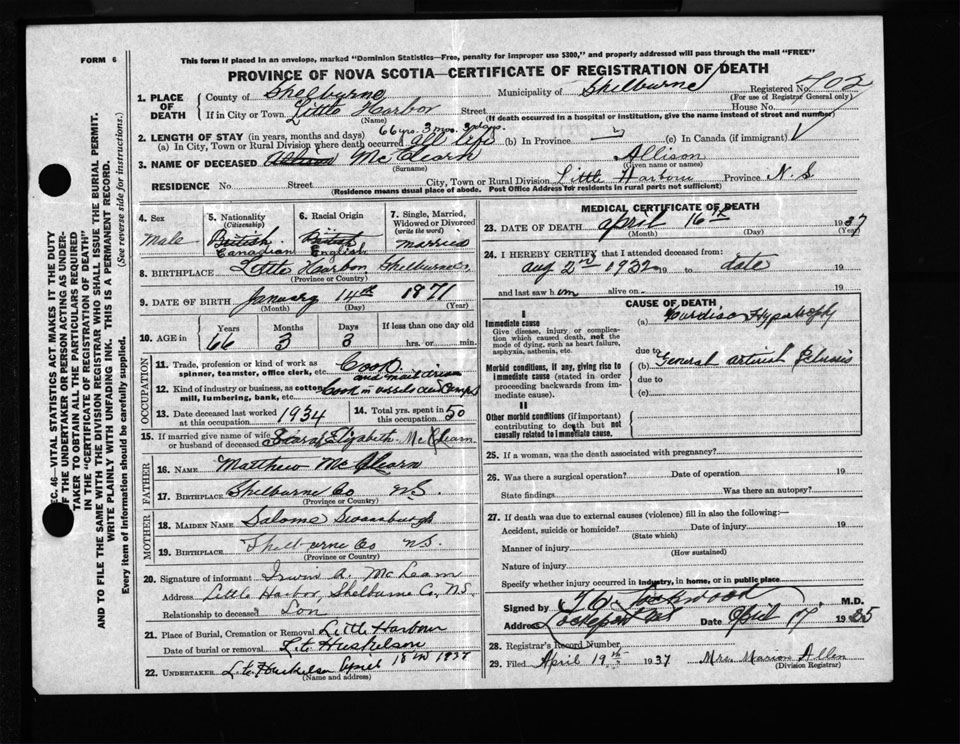 FORM 6
This form if placed in an envelope, marked "Dominion Statistics—Free, penalty for improper use $300," and properly addressed will pass through the mail "FREE"
PROVINCE OF NOVA SCOTIA—CERTIFICATE OF REGISTRATION OF DEATH
SEC. 46—VITAL STATISTICS ACT MAKES IT THE DUTY
OF THE UNDERTAKER OR PERSON ACTING AS UNDER-
TAKER TO OBTAIN ALL THE PARTICULARS REQUIRED
IN THE "CERTIFICATE OF REGISTRATION OF DEATH"
AND TO FILE THE SAME WITH THE DIVISION REGISTRAR WHO SHALL ISSUE THE BURIAL PERMIT.
WRITE PLAINLY WITH UNFADING INK. THIS IS A PERMANENT RECORD.
Every item of Information should be carefully supplied. (See reverse side for instructions.)
1. PLACE OF DEATH County of Shelburne Municipality of Shelburne Registered No. 702
(For use of Registrar General only)
If in City or Town Little Harbor Street House No.
(Name) (If death occurred in a hospital or institution, give the name instead of street and number)
2. LENGTH OF STAY (in years, months and days) 66 yrs. 3 mos. 3 days.
(a) In City, Town or Rural Division where death occurred all life (b) In Province (c) In Canada (if immigrant)
3. NAME OF DECEASED Allison McClearn Allison
(Surname) (Given name or names)
RESIDENCE No. Street City, Town or Rural Division Little Harbour Province N.S
(Residence means usual place of abode. Post Office Address for residents in rural parts not sufficient)
4. Sex 5. Nationality (Citizenship) 6. Racial Origin 7. Single, Married, Widowed or Divorced (write the word)
male British Canadian British English married
8. BIRTHPLACE Little Harbor Shelburne Co.
(Province or Country)
9. DATE OF BIRTH January 14th 1871
(Month) (Day) (Year)
10. AGE in Years Months Days If less than one day old
66 3 3 hrs. or min.
OCCUPATION
11. Trade, profession or kind of work as spinner, teamster, office clerk, etc. Cook
and mail driver
12. Kind of industry or business, as cotton mill, lumbering, bank, etc. Cook in vessels and Camps
13. Date deceased last worked at this occupation 1934 14. Total yrs. spent in this occupation 50
15. If married give name of wife or husband of deceased Elizabeth McClearn
FATHER
16. NAME Matthew McClearn
17. BIRTHPLACE Shelburne Co N.S.
(Province or Country)
MOTHER
18. MAIDEN NAME Salome Swansburgh
19. BIRTHPLACE Shelburne Co N.S.
(Province or Country)
20. Signature of informant Irwin A. McLearn
Address Little Harbor, Shelburne Co., N.S.
Relationship to deceased Son
21. Place of Burial, Cremation or Removal Little Harbour
Date of burial or removal L.C. Huskelson
22. UNDERTAKER L.C. Huskelson April 18th 1937
(Name and address)
MEDICAL CERTIFICATE OF DEATH
23. DATE OF DEATH April 16th 1937
(Month) (Day) (Year)
24. I HEREBY CERTIFY that I attended deceased from:
Aug 2nd 1932 19 to date 19
and last saw him alive on 19
CAUSE OF DEATH
I
Immediate cause (a) Hypertrophy
Give disease, injury or complication which caused death, not the mode of dying, such as heart failure, asphyxia, asthenia, etc.
due to
Morbid conditions, if any, giving rise to immediate cause (stated in order proceeding backwards from immediate cause). (b) General
due to
(c)
II
Other morbid conditions (if important) contributing to death but not causally related to immediate cause.
25. If a woman, was the death associated with pregnancy?
26. Was there a surgical operation? Date of operation 19
State findings Was there an autopsy?
27. If death was due to external causes (violence) fill in also the following:—
Accident, suicide or homicide? Date of injury 19
(State which)
Manner of injury
(How sustained)
Nature of injury
Specify whether injury occurred in Industry, in home, or in public place
Signed by M.D.
Address Lockeport NS Date April 17 1935
28. Registrar's Record Number
29. Filed April 19th 1937 Mrs. Marion Allen
(Division Registrar)